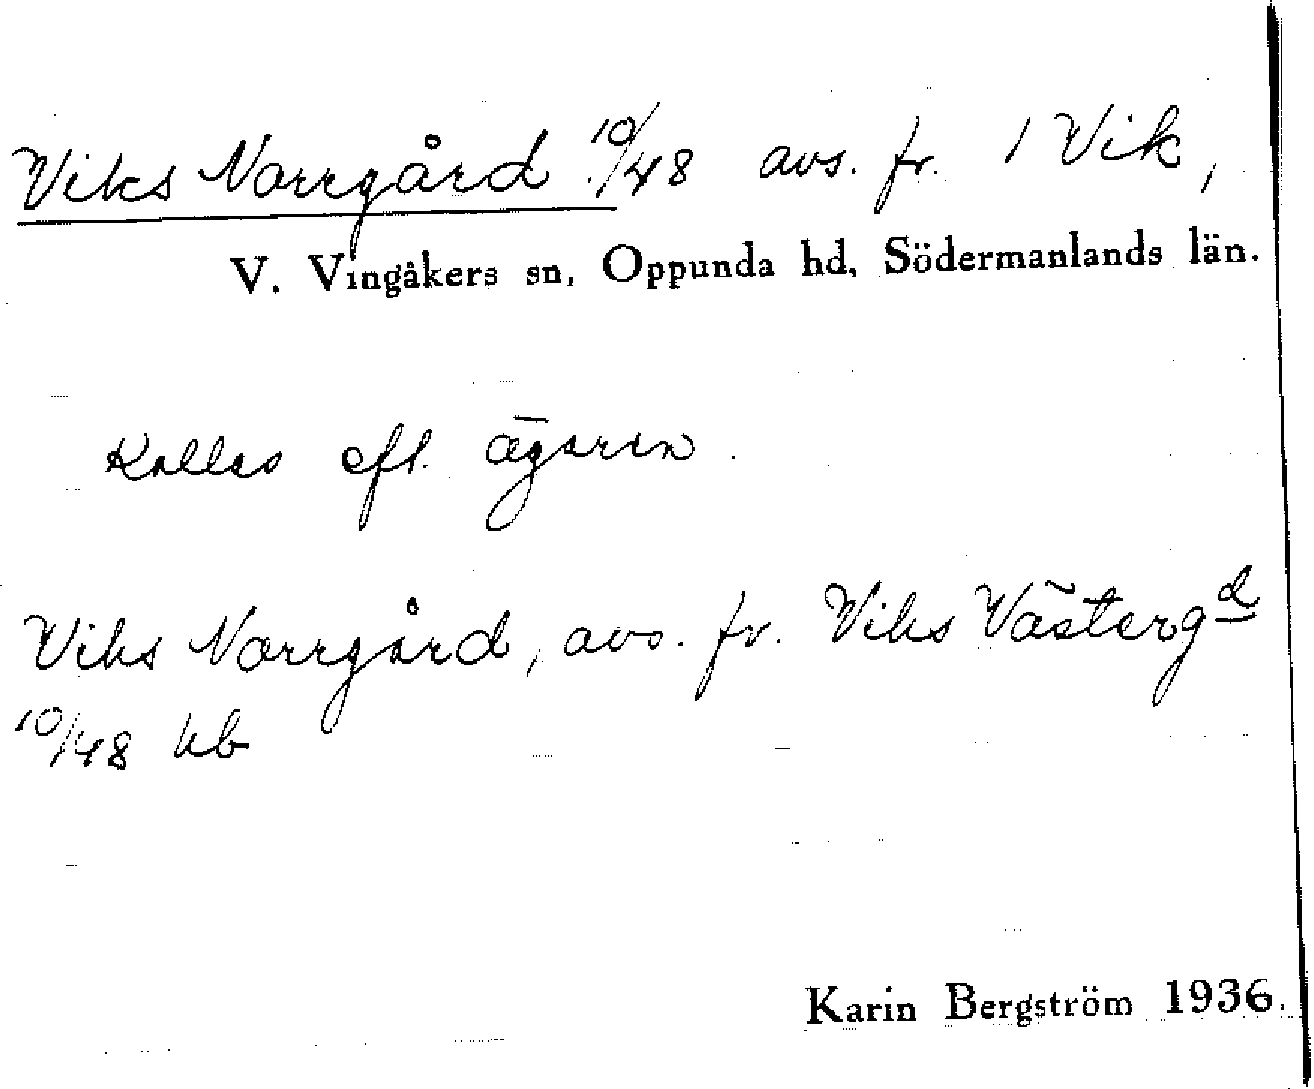 Viks Norrgård 10/48 avs. fr. 1 Vik,
V. Vingåkers sn, Oppunda hd, Södermanlands län.
Kallas eft. ägaren.
Viks Norrgård, avs. fr. Viks Västerg d
10/48 kb
Karin Bergström 1936.